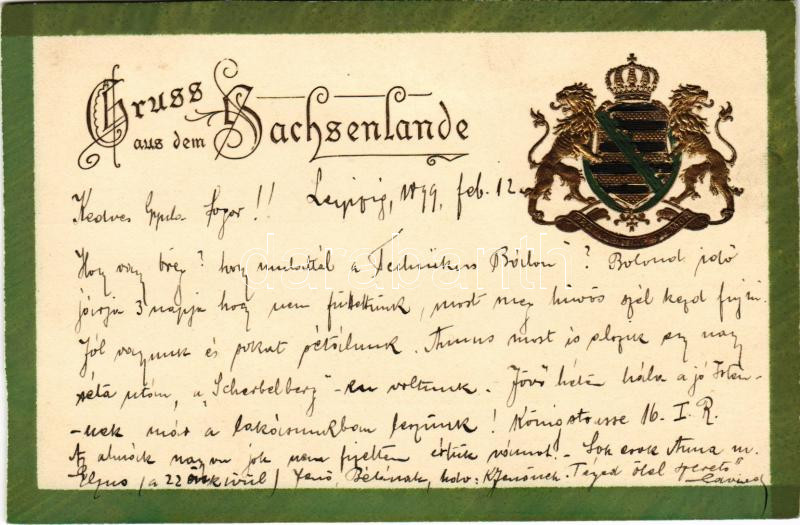 Gruss
aus dem Sachsenlande
Leipzig, 1899. feb. 12.
Kedves Gyula Sogor!!
Hogy vagy öreg? hogy mulattál a Technikus Bálon? Bolond idő
járja 3 napja hogy nem fűtöttünk, most meg hűvös szél kezd fujni.
Jól vagyunk és sokat sétálunk. Annus most is alszik egy nagy
séta után, a "Scherbelberg"-en voltunk. Jövő héten hála a jó Isten-
-nek már a lakásunkban leszünk! Königstrasse 16. I. R.
Az almák nagyon jók nem fizettem értük vámot! - Sok csók Anna m.
(a 22 kivül) Jenő, Bélának, üdv: K. Jenőnek. Téged ölel szerető
darabanth